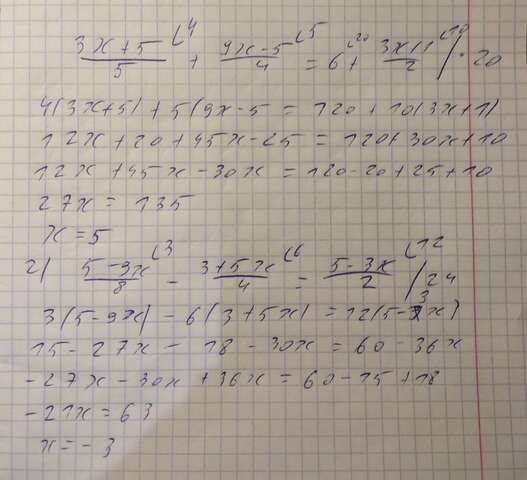 (3x+5)/5 ⌊4 + (9x-5)/4 ⌊5 = 6 ⌊20 + (3x+1)/2 ⌊10 / · 20
4(3x+5) + 5(9x-5 = 120 + 10(3x+1)
12x+20+45x-25 = 120+30x+10
12x+45x-30x = 120-20+25+10
27x = 135
x = 5
2) (5-9x)/8 ⌊3 - (3+5x)/4 ⌊6 = (5-3x)/2 ⌊12 / 24
3(5-9x) - 6(3+5x) = 12(5-3x)
15-27x - 18-30x = 60-36x
-27x-30x+36x = 60-15+18
-21x = 63
x = -3